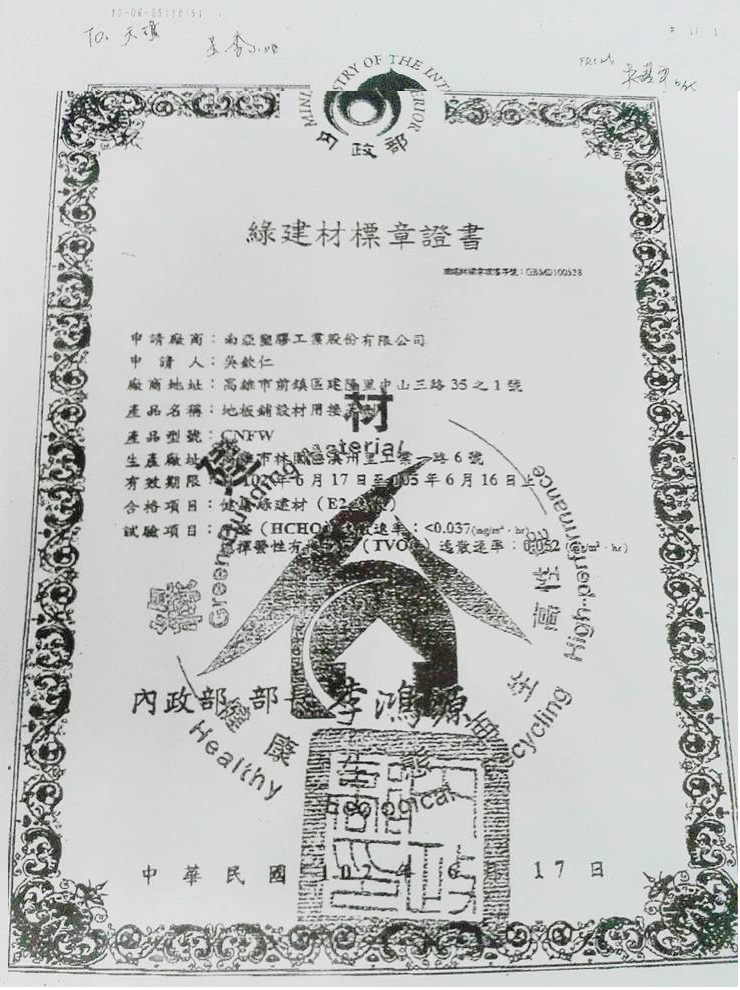 To. 天
MINISTRY OF THE INTERIOR
內政部
綠建材標章證書
綠建材標章證書字號：GBM0100538
申請廠商：南亞塑膠工業股份有限公司
申請人：吳欽仁
廠商地址：高雄市前鎮區建隆里中山三路 35 之 1 號
產品名稱：地板鋪設材用接
產品型號：CNFW
生產廠址：高雄市林園區 里工業一路 6 號
有效期限： 年 6 月 17 日至 105 年 6 月 16 日止
合格項目：健康綠建材（E2
試驗項目： （HCHO） 速率：<0.037(mg/m²·hr)
揮發性有 （TVOC）逸散速率：0.052 (mg/m²·hr)
綠建材
Green Building Material
高性
High-performance
再生
Recycling
生態
Ecological
健康
Healthy
內政部 部長 李鴻源
中華民國 102 年 6 月 17 日